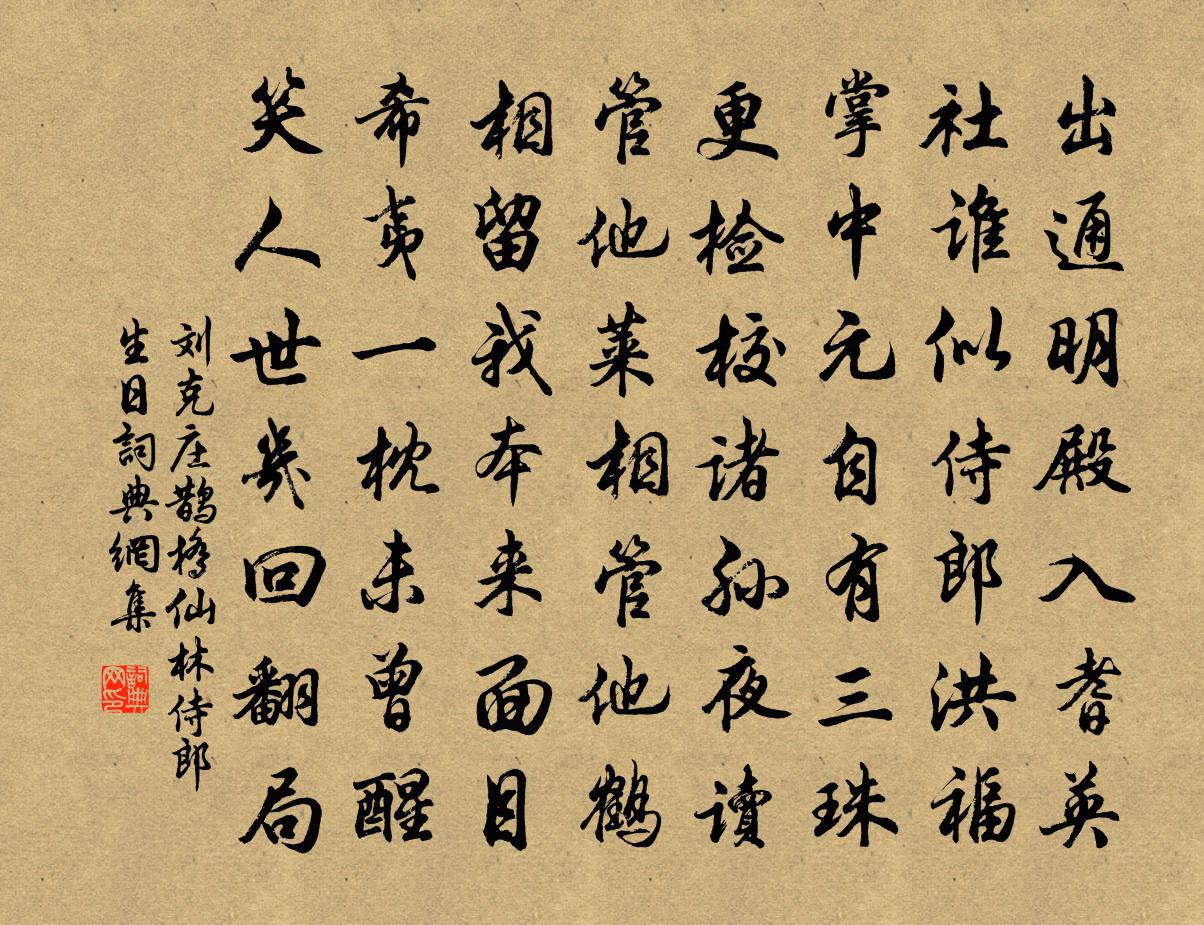 出通明殿入耆英
社谁似侍郎洪福
掌中元自有三珠
更检校诸孙夜读
管他莱相管他鹤
相留我本来面目
希夷一枕未曾醒
笑人世几回翻局
刘克庄鹊桥仙林侍郎
生日詞典網集
詞典
网印